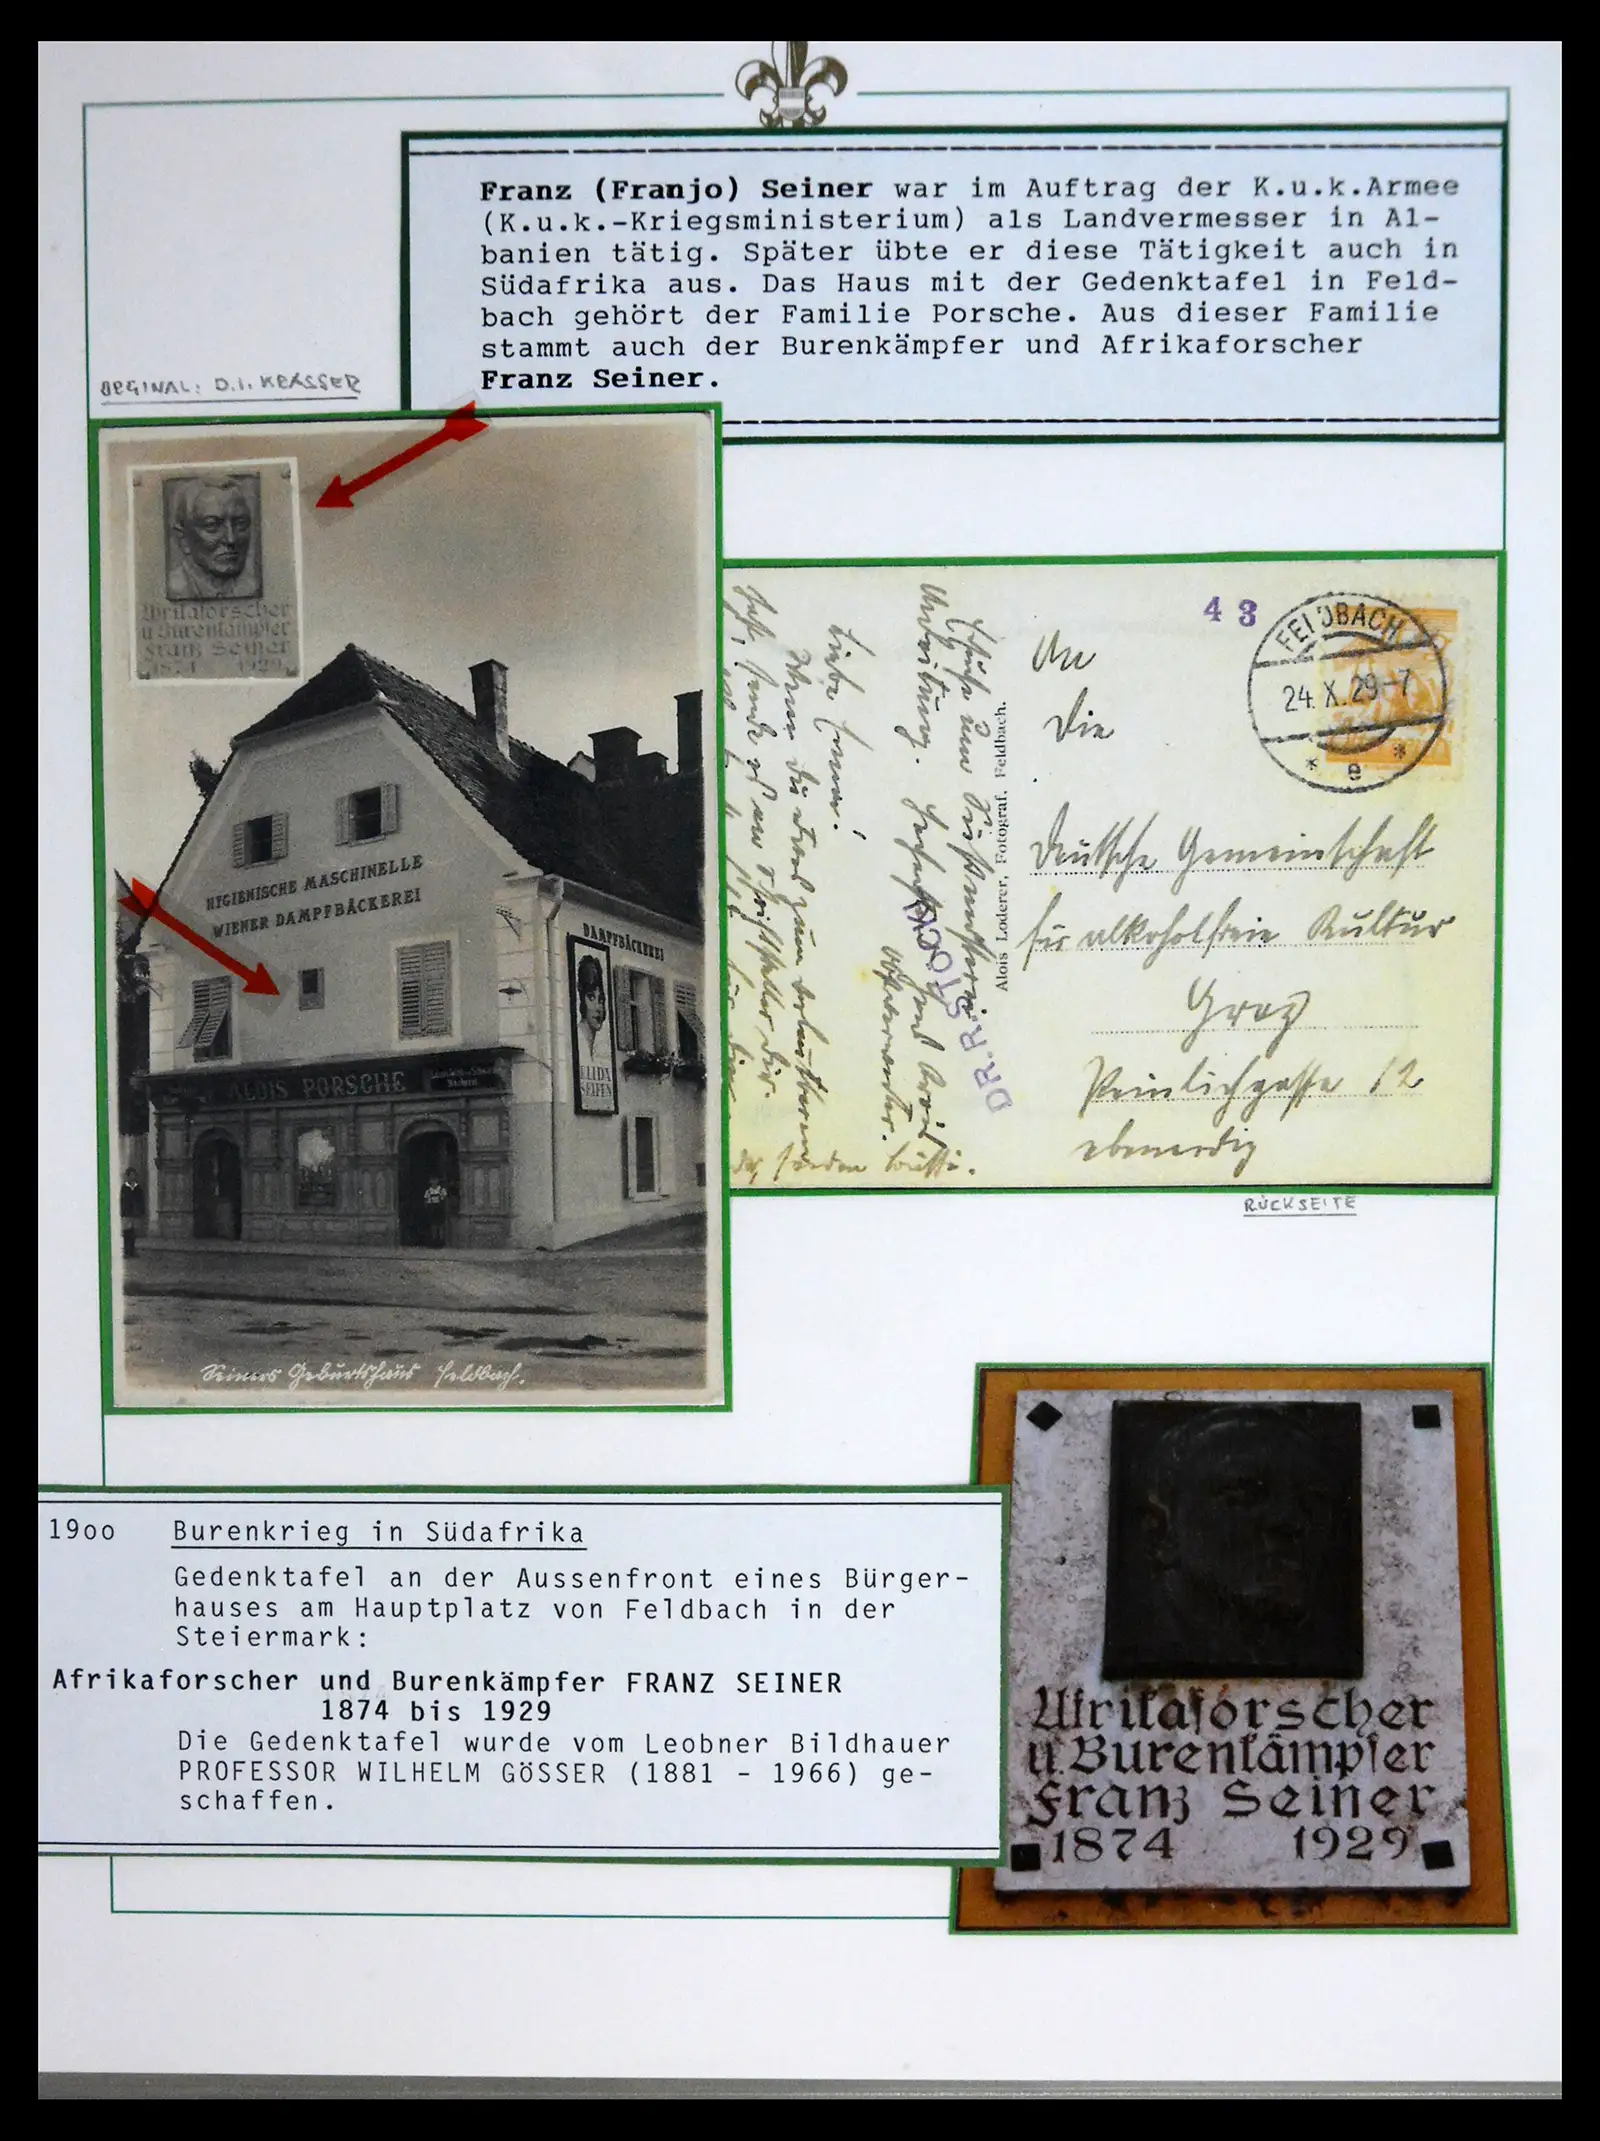 Franz (Franjo) Seiner war im Auftrag der K.u.k.Armee
(K.u.k.-Kriegsministerium) als Landvermesser in Al-
banien tätig. Später übte er diese Tätigkeit auch in
Südafrika aus. Das Haus mit der Gedenktafel in Feld-
bach gehört der Familie Porsche. Aus dieser Familie
stammt auch der Burenkämpfer und Afrikaforscher
Franz Seiner.
ORGINAL: D.I. KRASSER
Afrikaforscher
u Burenkämpfer
Franz Seiner
1874 1929
HYGIENISCHE MASCHINELLE
WIENER DAMPFBÄCKEREI
DAMPFBÄCKEREI
ELIDA
SEIFEN
ALOIS PORSCHE
Seiners Geburtshaus Feldbach.
Liebe
Alois Loderer, Fotograf, Feldbach.
DR.R.
43
FELDBACH
24.X.29-7
* e *
An
die
Deutsche Gemeinschaft
für alkoholfreie Kultur
Graz
12
ebenerdig
RÜCKSEITE
19oo Burenkrieg in Südafrika
Gedenktafel an der Aussenfront eines Bürger-
hauses am Hauptplatz von Feldbach in der
Steiermark:
Afrikaforscher und Burenkämpfer FRANZ SEINER
1874 bis 1929
Die Gedenktafel wurde vom Leobner Bildhauer
PROFESSOR WILHELM GöSSER (1881 - 1966) ge-
schaffen.
Afrikaforscher
u. Burenkämpfer
Franz Seiner
1874 1929